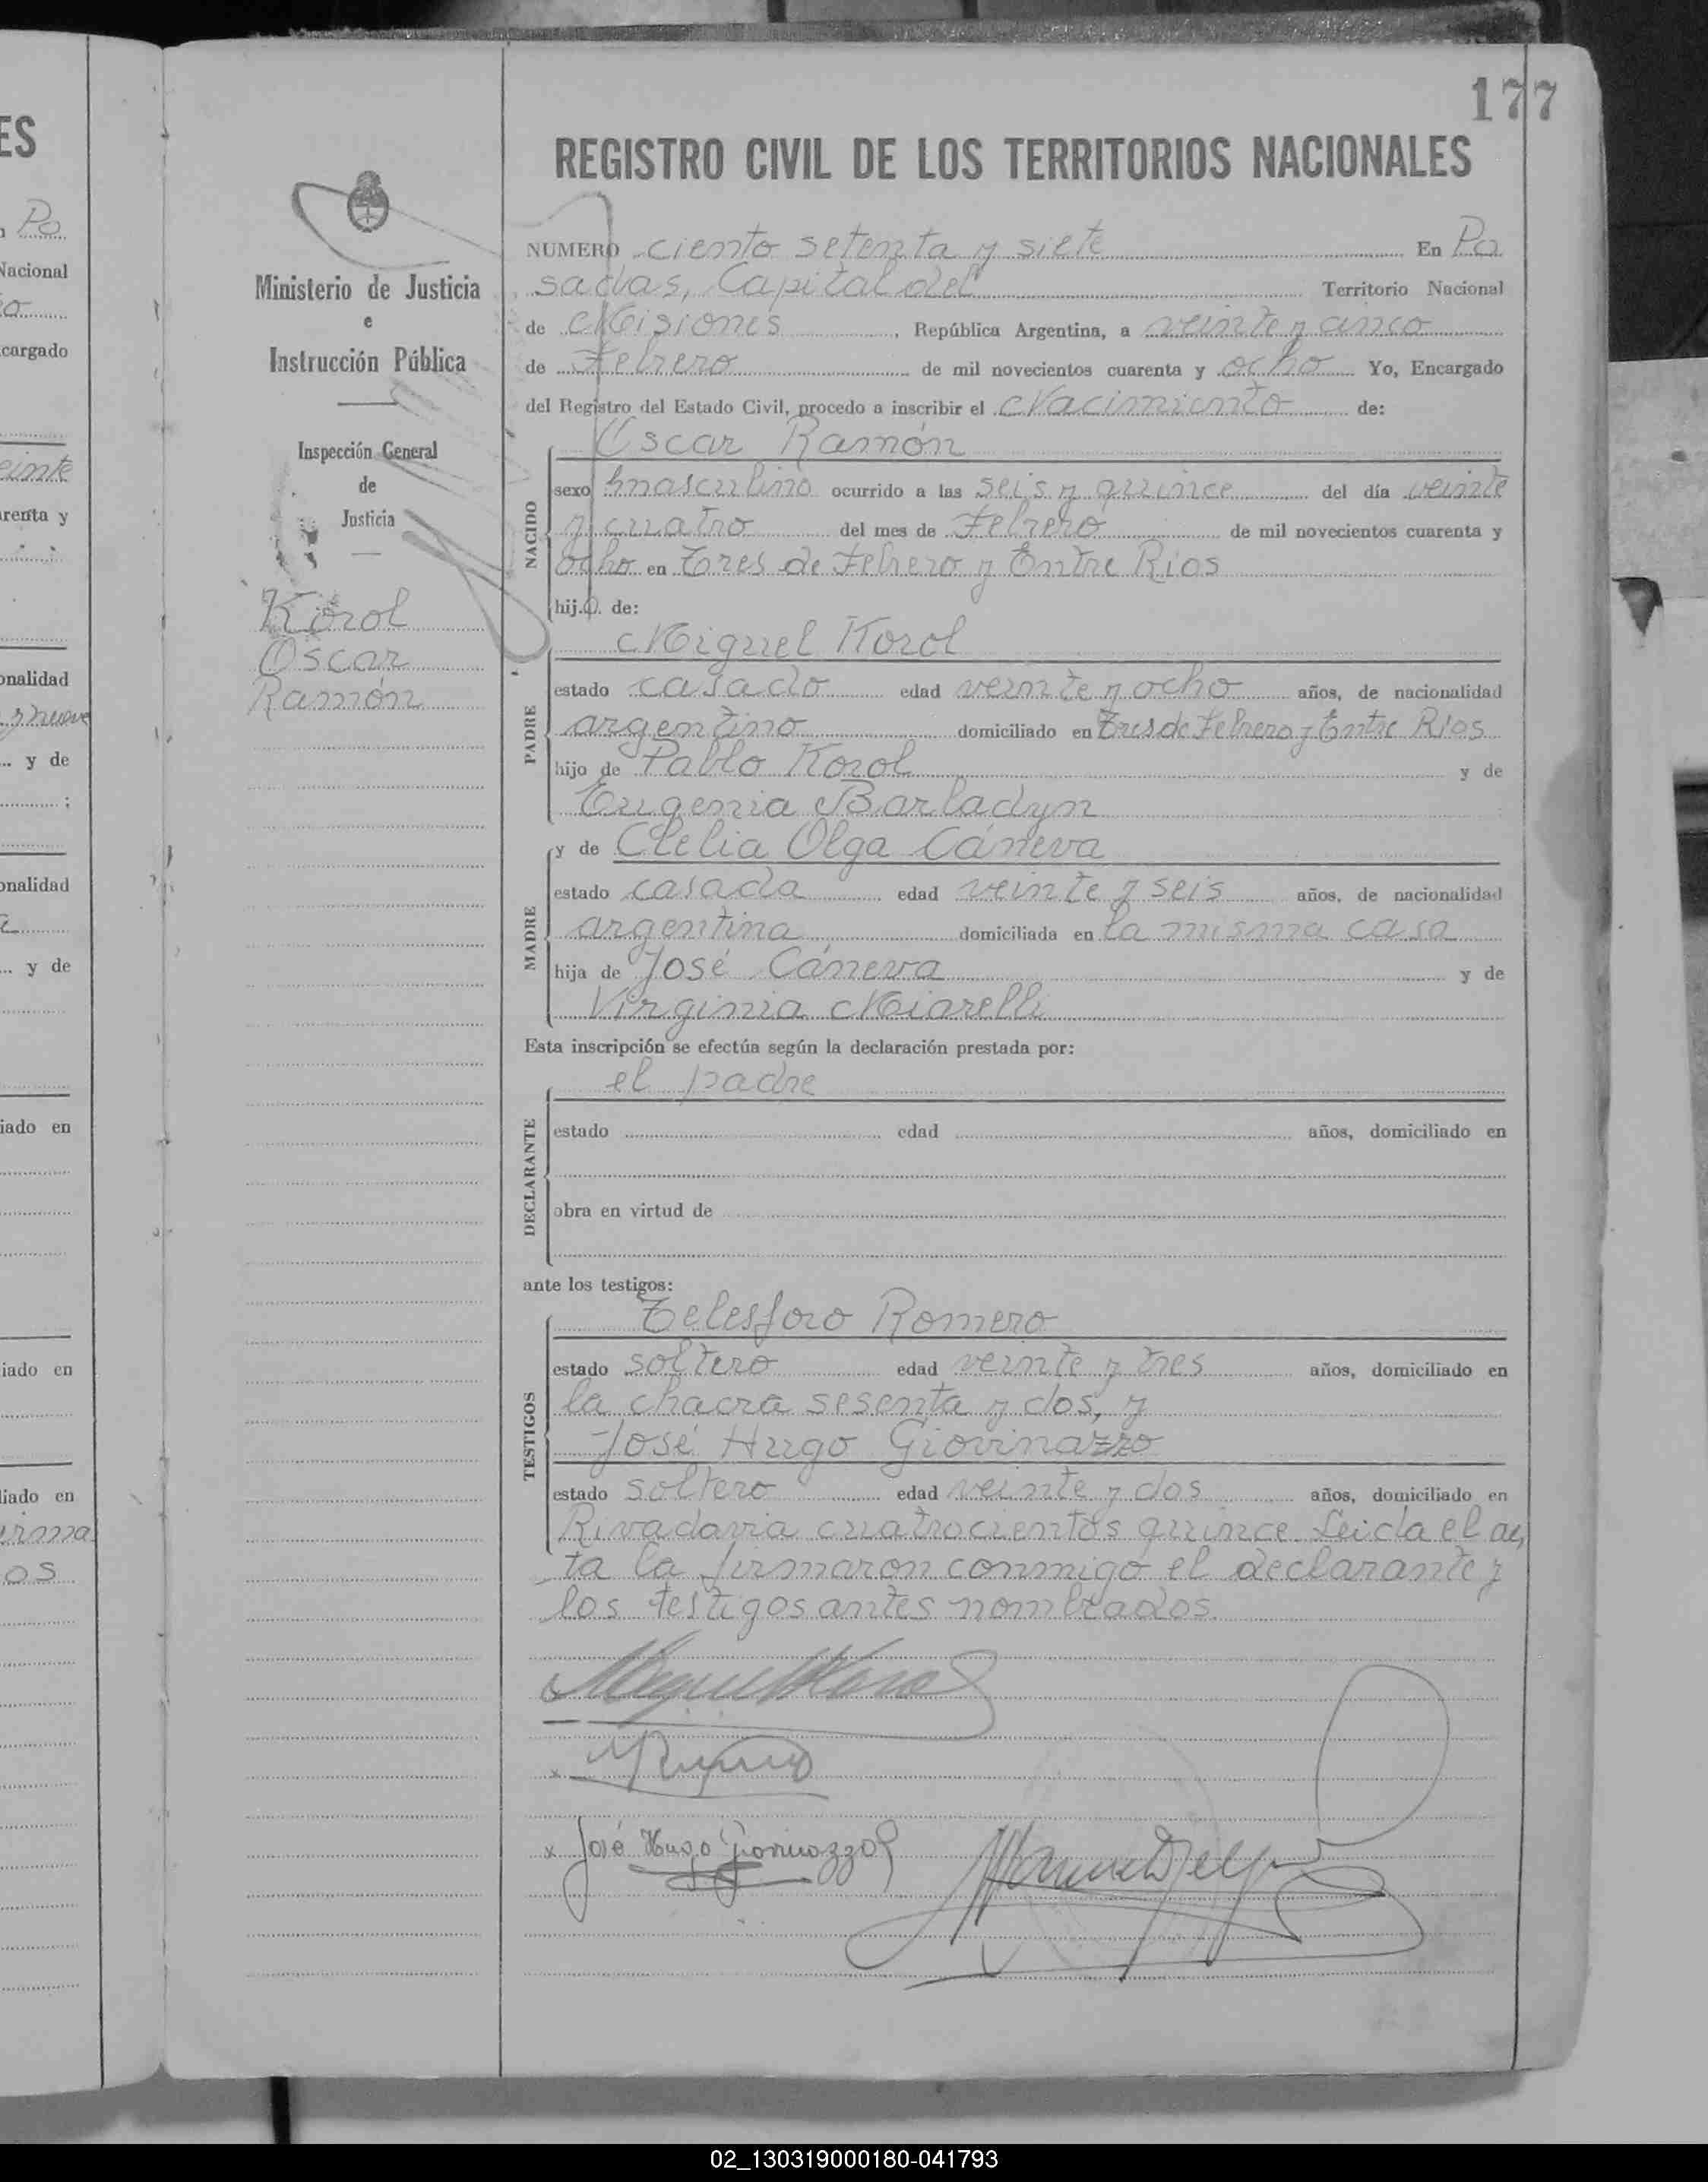 177
ES
REGISTRO CIVIL DE LOS TERRITORIOS NACIONALES
Po
Nacional
cargado
einte
renta y
onalidad
y nueve
y de
onalidad
y de
iado en
iado en
liado en
irma
os
Ministerio de Justicia
e
Instrucción Pública
Inspección General
de
Justicia
Korol
Oscar
Ramón
NUMERO ciento setenta y siete En Po
sadas, Capital del Territorio Nacional
de Misiones, República Argentina, a veinte y cinco
de Febrero de mil novecientos cuarenta y ocho Yo, Encargado
del Registro del Estado Civil, procedo a inscribir el Nacimiento de:
Oscar Ramón
NACIDO
sexo masculino ocurrido a las seis y quince del día veinte
y cuatro del mes de Febrero de mil novecientos cuarenta y
ocho en Tres de Febrero y Entre Rios
hijo de:
Miguel Korol
PADRE
estado casado edad veinte y ocho años, de nacionalidad
argentino domiciliado en Tres de Febrero y Entre Rios
hijo de Pablo Korol y de
Eugenia Barladyn
y de Clelia Olga Cáneva
MADRE
estado casada edad veinte y seis años, de nacionalidad
argentina domiciliada en la misma casa
hija de José Cáneva y de
Virginia Miarelli
Esta inscripción se efectúa según la declaración prestada por:
el padre
DECLARANTE
estado edad años, domiciliado en
obra en virtud de
ante los testigos:
Telesforo Romero
TESTIGOS
estado soltero edad veinte y tres años, domiciliado en
la chacra sesenta y dos, y
José Hugo Giovinazzo
estado soltero edad veinte y dos años, domiciliado en
Rivadavia cuatrocientos quince. Leida el ac,
ta la firmaron conmigo el declarante y
los testigos antes nombrados.
Miguel Korol
x
x José Hugo Giovinazzo
02_130319000180-041793